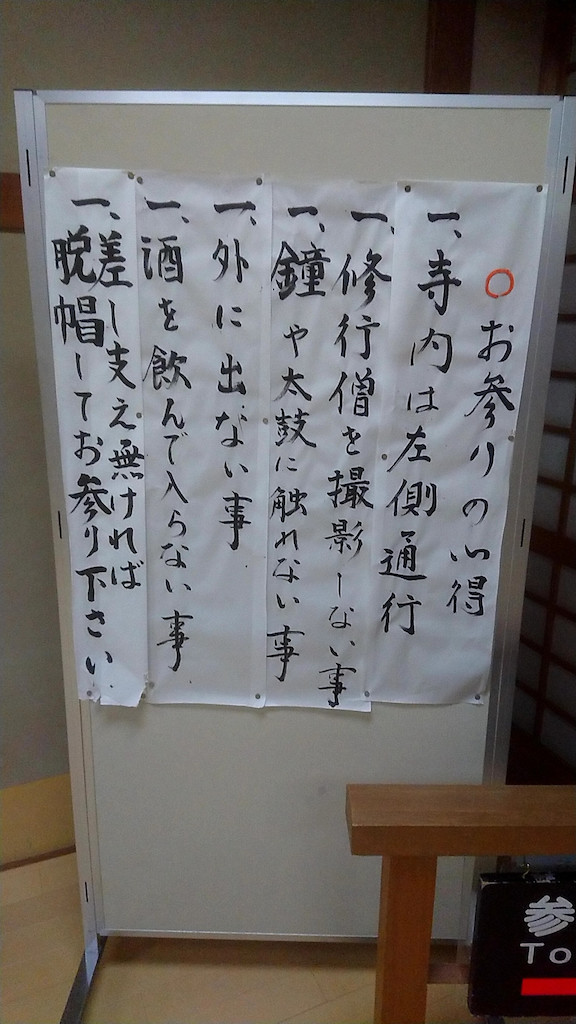 ○お参りの心得
一、寺内は左側通行
一、修行僧を撮影しない事
一、鐘や太鼓に触れない事
一、外に出ない事
一、酒を飲んで入らない事
一、差し支え無ければ
脱帽してお参り下さい
参
To